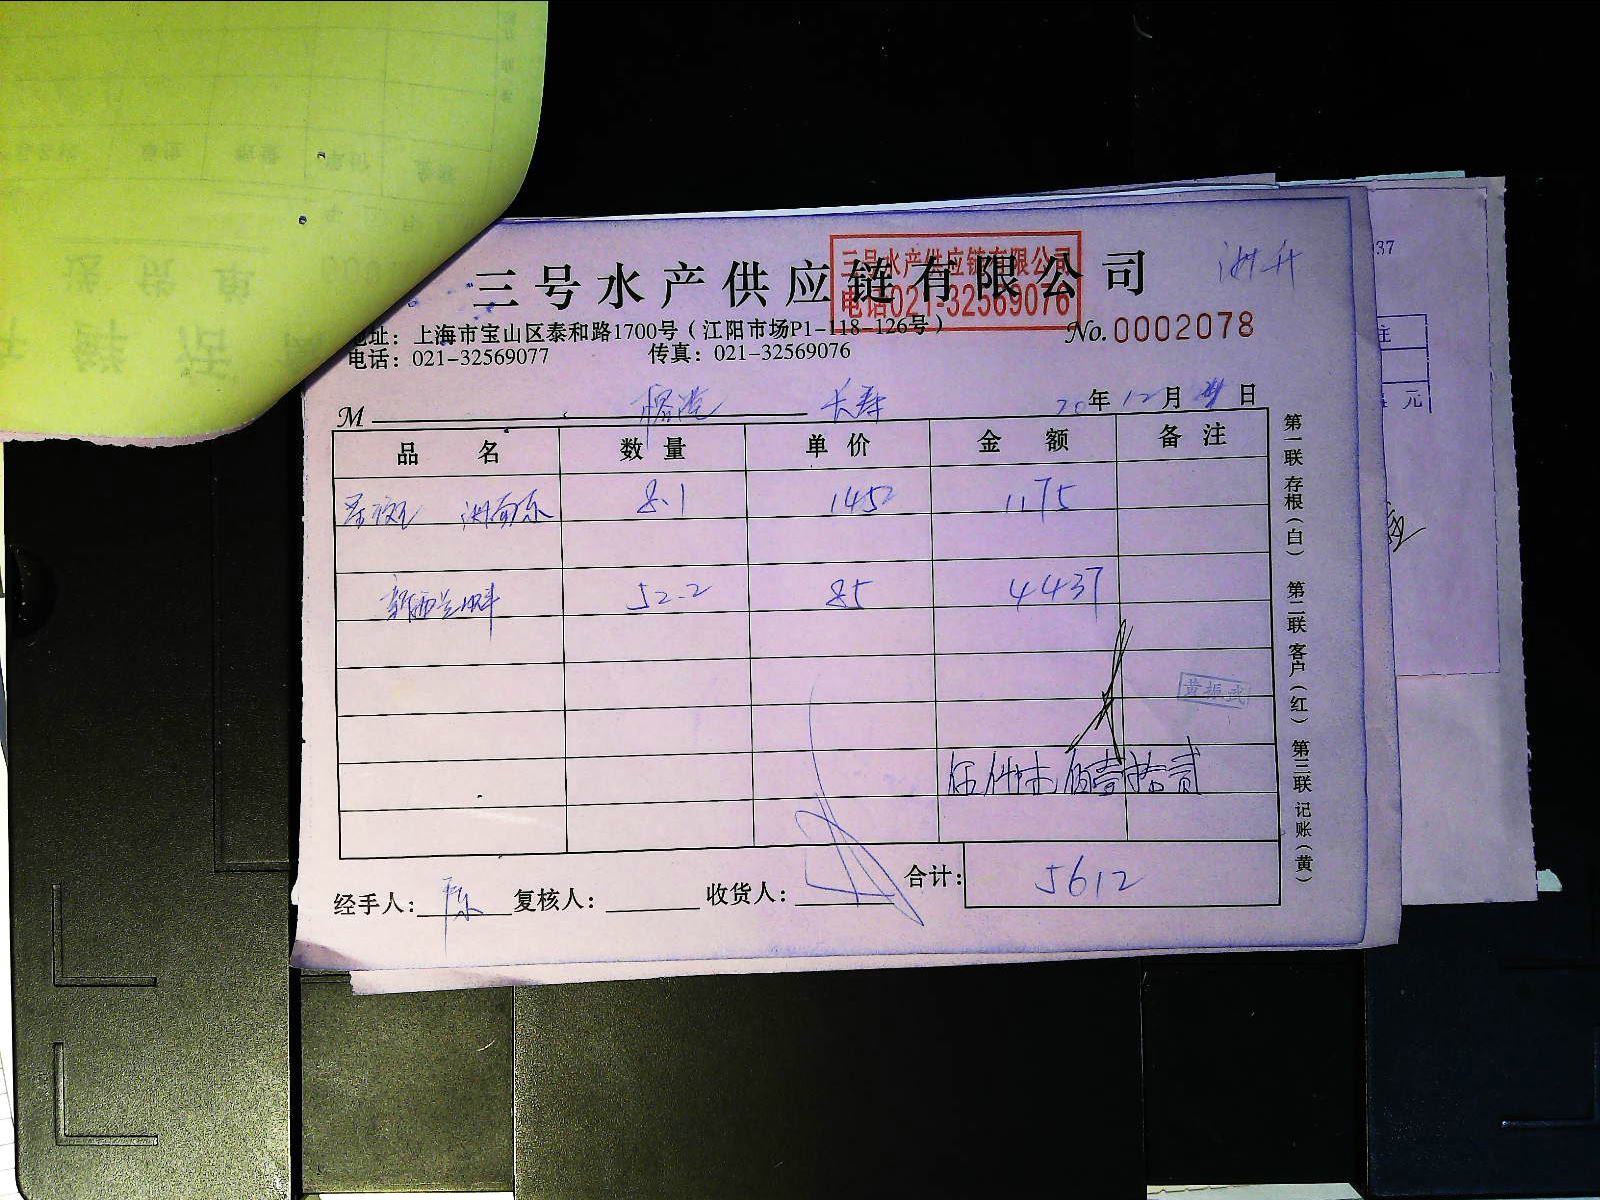 三号水产供应链有限公司
三号水产供应链有限公司
电话021-32569076
地址：上海市宝山区泰和路1700号（江阳市场P1-118-126号）
No.0002078
电话：021-32569077 传真：021-32569076
M 长寿 20年12月 日
品 名 数量 单价 金 额 备注
8.1 145 1175
新西兰 52.2 85 4437
黄振武
伍仟陆佰壹拾贰
合计： 5612
经手人：陈 复核人： 收货人：
第一联 存根（白） 第二联 客户（红） 第三联 记账（黄）
37
注
元
送货单